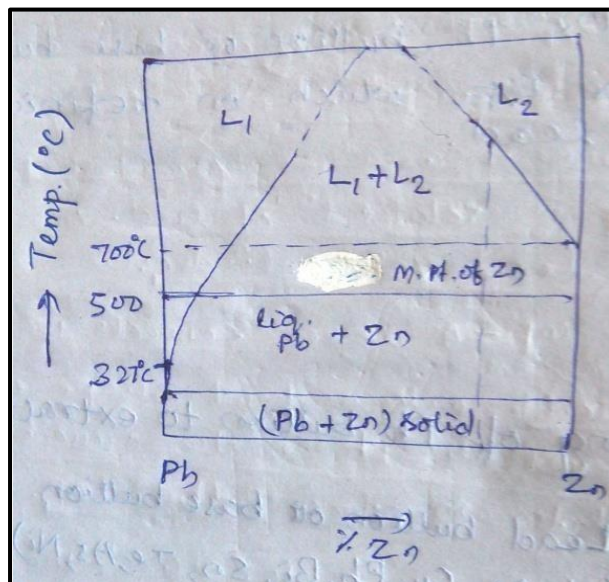 L₁
L₂
L₁ + L₂
Temp. (°C)
700°C
M. Pt. of Zn
500
liq. Pb + Zn
327°C
(Pb + Zn) solid
Pb
Zn
% Zn